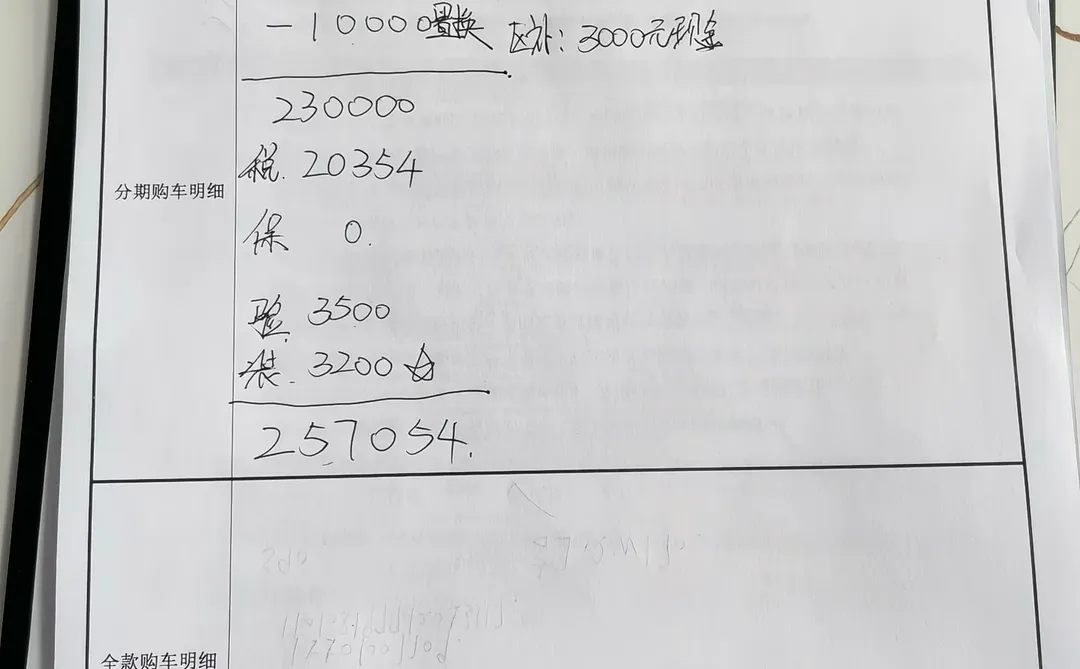 -10000置换 区补：3000元现金
230000
税.20354
分期购车明细
保 0.
验.3500
装.3200
257054.
全款购车明细